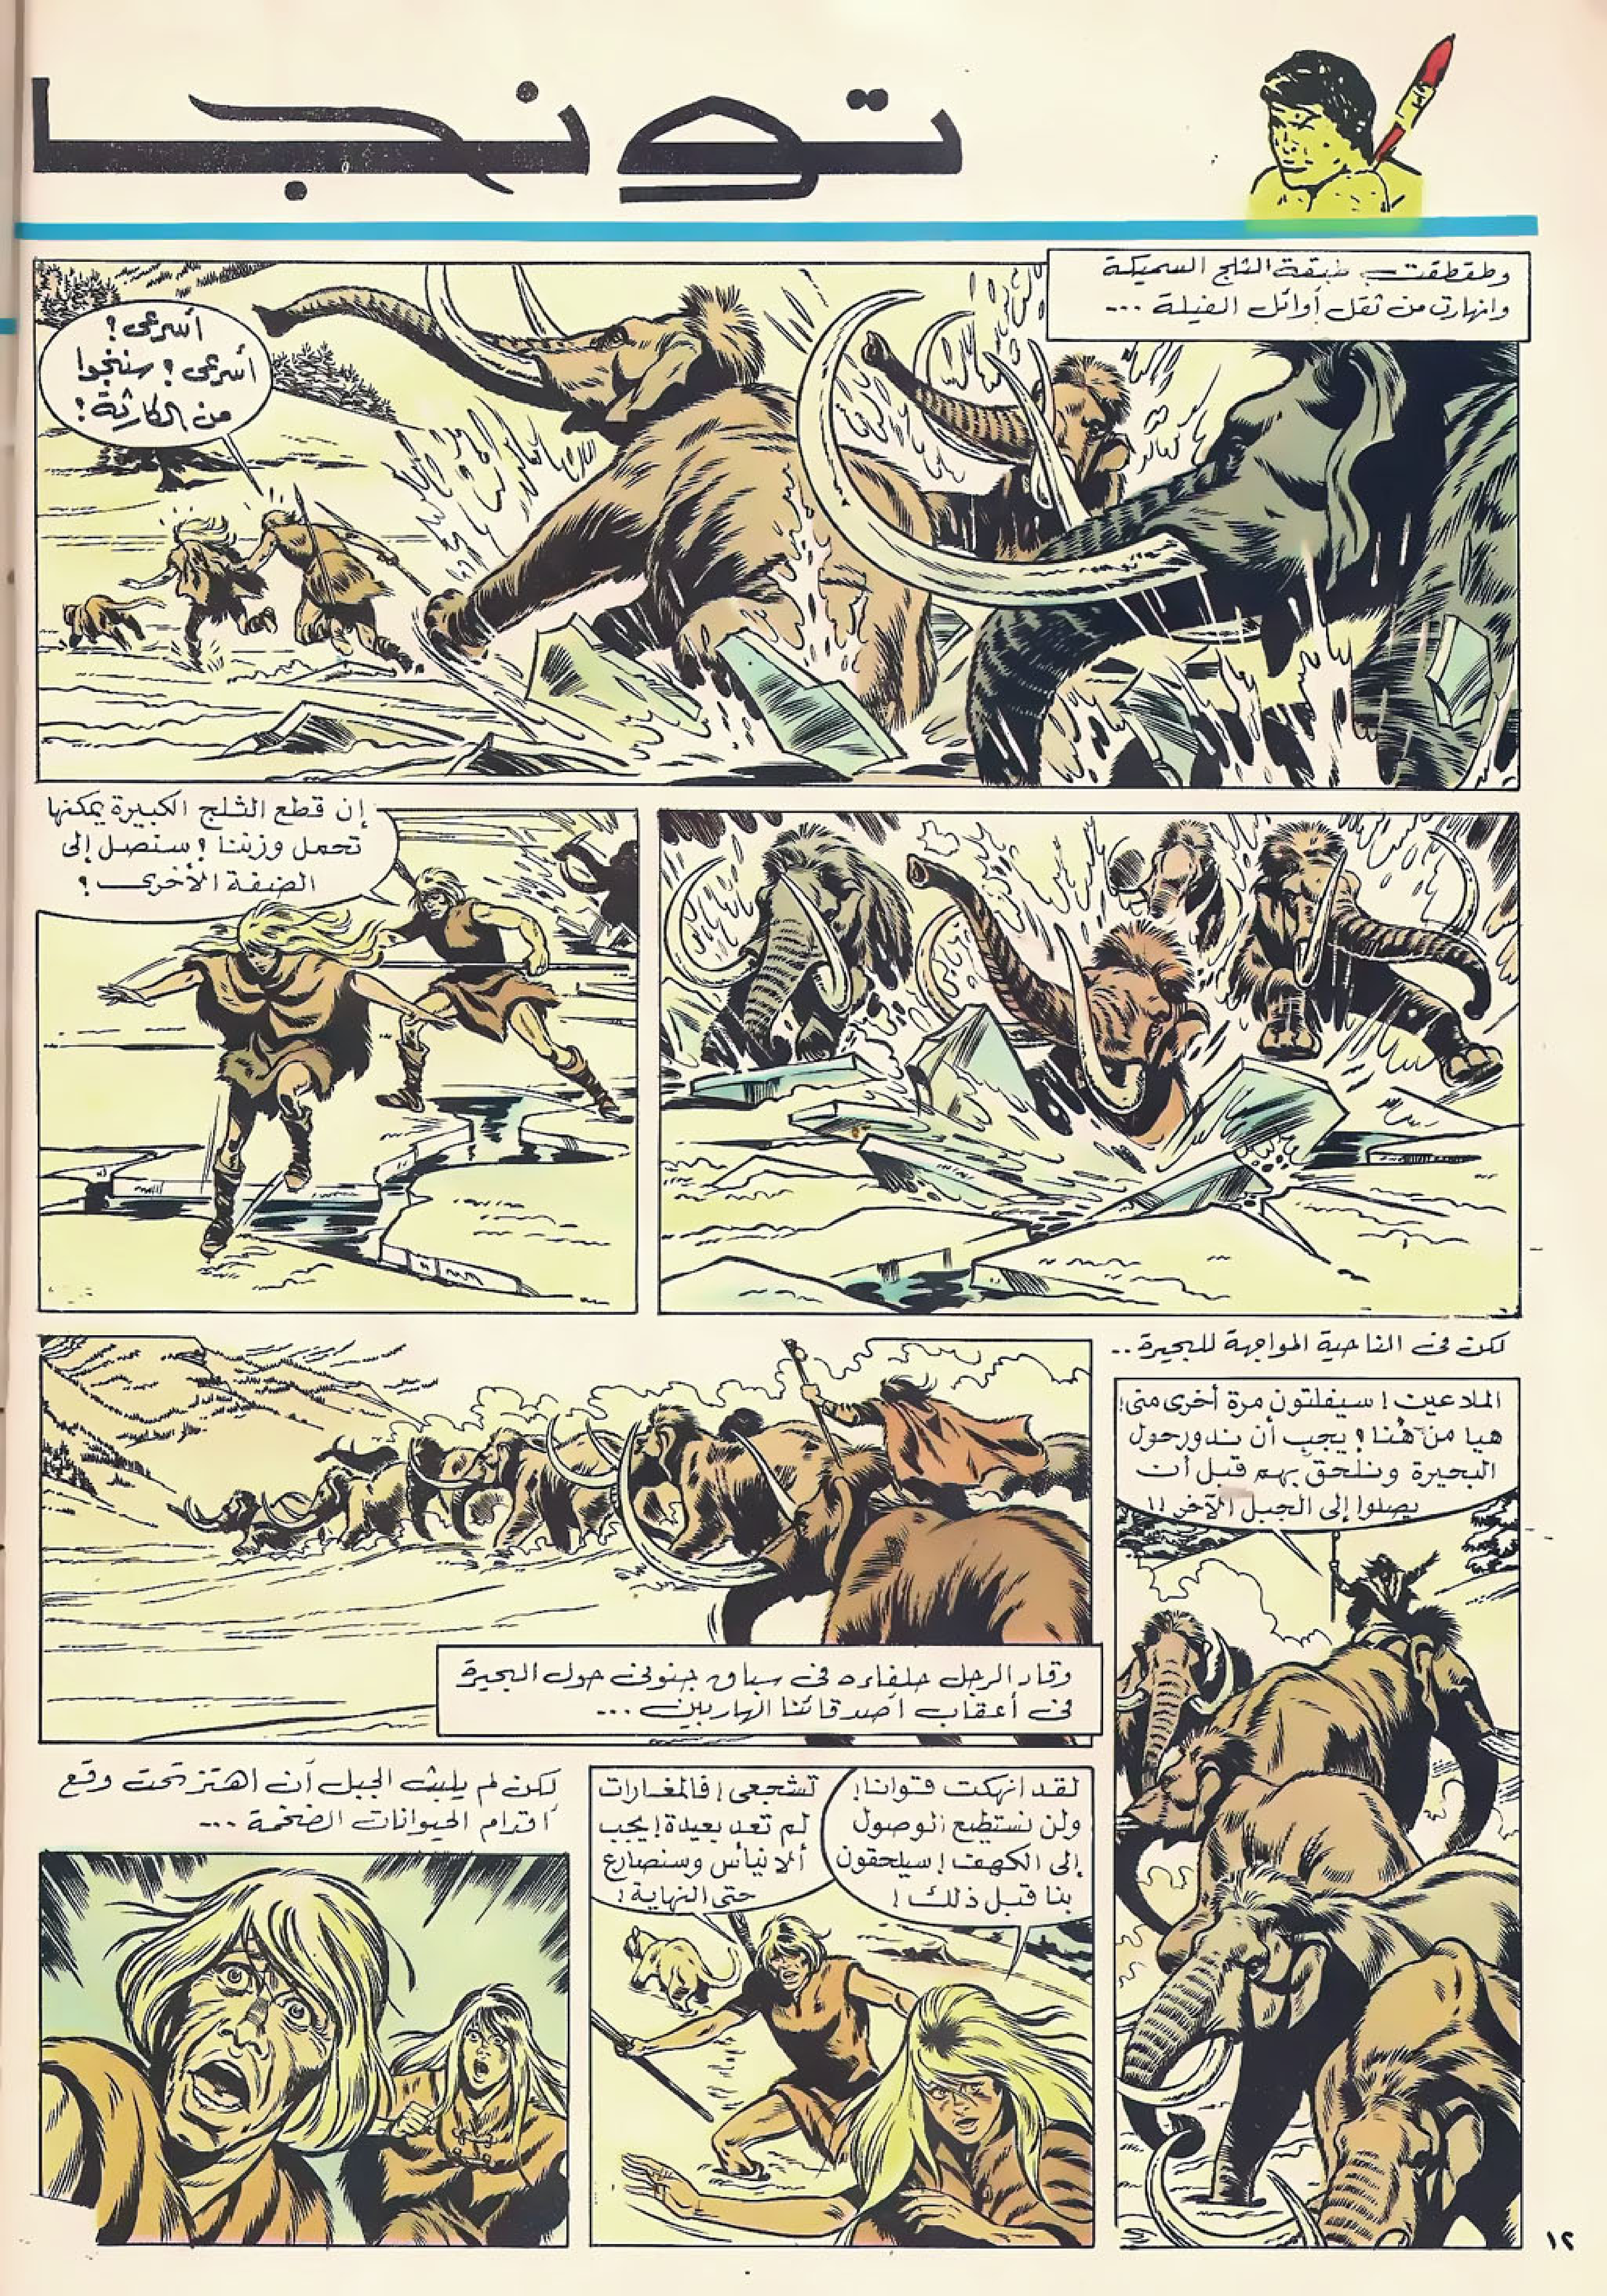 تونجا
وطقطقت طبقة الثلج السميكة
وانهارت من ثقل أوائل الفيلة ...
أسرعى ؟
أسرعى ؟ سننجوا
من الكارثة ؟
إن قطع الثلج الكبيرة يمكنها
تحمل وزننا ؟ سنصل إلى
الضفة الأخرى ؟
لكن فى الناحية المواجهة للبحيرة ..
الملاعين ! سيفلتون مرة أخرى منى !
هيا من هُنا ؟ يجب أن ندور حول
البحيرة ونلحق بهم قبل أن
يصلوا إلى الجبل الآخر !!
وقاد الرجل حلفاءه فى سباق جنونى حول البحيرة
فى أعقاب أصدقائنا الهاربين ...
لقد انهكت قوانا !
ولن نستطيع الوصول
إلى الكهف ! سيلحقون
بنا قبل ذلك !
تشجعى ! فالمغارات
لم تعد بعيدة ! يجب
ألا نيأس وسنصارع
حتى النهاية !
لكن لم يلبث الجبل أن اهتز تحت وقع
أقدام الحيوانات الضخمة ...
١٢